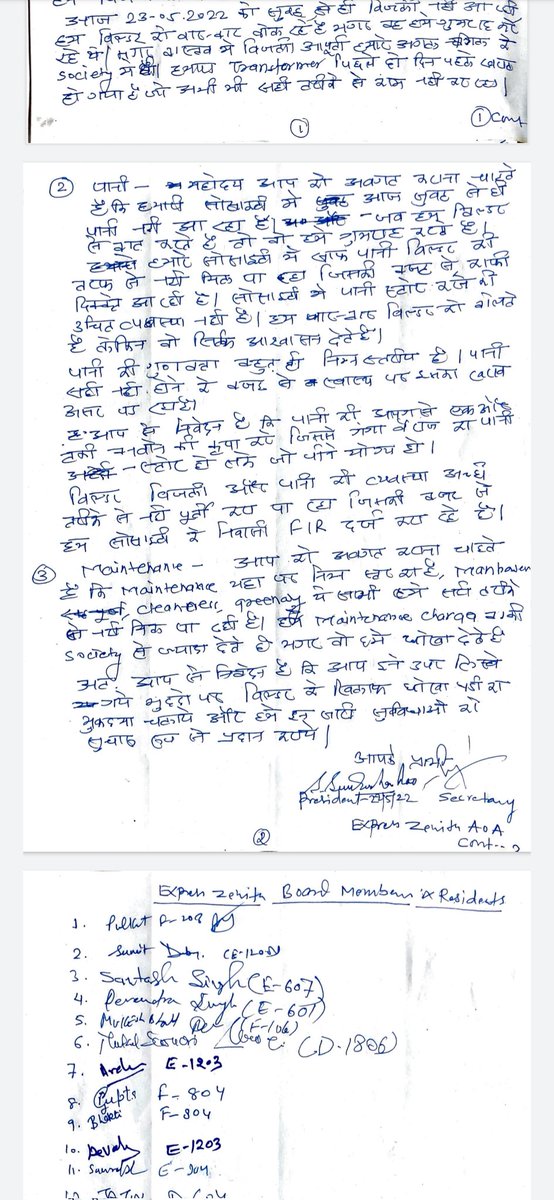 आज 23-05.2022 को सुबह से ही बिजली नही आ रही
हम बिल्डर को बार-बार बोल रहे है मगर वह हमे गुमराह कर
रहे थे। मगर वास्तव मे बिजली आपूर्ती हमारे
society मे है। हमारा Transformer पिछले दो दिन पहले खराब
हो गया है जो अभी भी सही तरीके से काम नही कर रहा।
① Cont
①
② पानी - महोदय आप को अवगत कराना चाहते
है कि हमारी सोसाइटी मे आज सुबह से ही
पानी नही आ रहा है। जब हम बिल्डर
से बात करते है तो वो हमे गुमराह करते है।
हमारे सोसाइटी मे साफ पानी बिल्डर की
तरफ से नही मिल पा रहा जिसकी वजह से काफी
दिक्कते आ रही है। सोसाइटी मे पानी स्टोर करने की
उचित व्यवस्था नही है। हम बार-बार बिल्डर को बोलते
है लेकिन वो सिर्फ आश्वासन देते है।
पानी की गुणवत्ता बहुत ही निम्न स्तरीय है। पानी
सही नही होने के वजह से स्वास्थ पर इसका खराब
असर पड़ रहा है।
आप से निवेदन है कि पानी की
टंकी बनवाने की कृपा करे जिससे गंगा वाटर का पानी
स्टोर हो सके जो पीने योग्य हो।
बिल्डर बिजली और पानी की व्यवस्था अच्छे
तरीके से नही पूर्ती कर पा रहा जिसकी वजह से
हम सोसाइटी के निवासी FIR दर्ज करा रहे है।
③ Maintenance - आप को अवगत कराना चाहते
है कि Maintenance यहा पर निम्न स्तर का है, Manpower
cleanness, greenary ये सभी हमे सही तरीके
से नही मिल पा रही है। हम Maintenance charge बाकी
society से ज्यादा देते है मगर वो हमे धोखा देते है
अतः आप से निवेदन है कि आप इन उपर लिखे
गये मुद्दो पर बिल्डर के खिलाफ धोखा धडी का
मुकदमा चलाये और हमे इन सारी सुविधाओ को
सुचारू रूप से प्रदान कराये।
आपके प्रार्थी
President 23/5/22 Secretary
Express Zenith AOA
Cont-- 2
②
Express Zenith Board Members & Residents
1. Pulkit A-208
2. Sumit (E-1201)
3. Santosh Singh (E-607)
4. Devendra Singh (E-601)
5. Mukesh (E-106)
6. (D-1806)
7. E-1203
8. Gupta F-804
9. Bhakti F-804
10. Devesh E-1203
11. Saurabh E-904